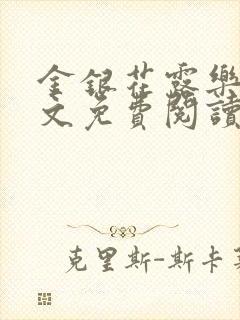 金銀花露樂
文免費閱讀
克里斯-斯卡